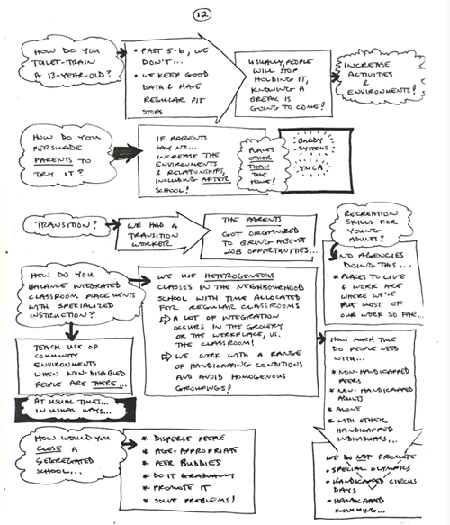 12
HOW DO YOU
TOILET-TRAIN
A 13-YEAR-OLD?
• PAST 5-6, WE
DON'T...
• WE KEEP GOOD
DATA & HAVE
REGULAR PIT
STOPS
USUALLY, PEOPLE
WILL STOP
HOLDING IT,
KNOWING A
BREAK IS
GOING TO COME!
INCREASE
ACTIVITIES
&
ENVIRONMENTS!
HOW DO YOU
PERSUADE
PARENTS TO
TRY IT?
IF PARENTS
SAY NO...
INCREASE THE
ENVIRONMENTS
& RELATIONSHIPS,
INCLUDING AFTER
SCHOOL!
PLACES
OTHER
THAN
THE
HOME!
BUDDY
SYSTEMS
YMCA
"TRANSITION"?
WE HAD A
TRANSITION
WORKER
THE PARENTS
GOT ORGANIZED
TO BRING ABOUT
JOB OPPORTUNITIES...
RECREATION
SKILLS FOR
YOUNG
ADULTS?
• NO AGENCIES
DOING THIS...
• PLACES TO LIVE
& WORK ARE
WHERE WE'VE
PUT MOST OF
OUR WORK SO FAR...
HOW DO YOU
BALANCE INTEGRATED
CLASSROOM PLACEMENTS
WITH SPECIALIZED
INSTRUCTION?
WE USE HETEROGENEOUS
CLASSES IN THE NEIGHBOURHOOD
SCHOOL WITH TIME ALLOCATED
FOR REGULAR CLASSROOMS
A LOT OF INTEGRATION
OCCURS IN THE GROCERY
OR THE WORKPLACE, VS.
THE CLASSROOM!
WE WORK WITH A RANGE
OF HANDICAPPING CONDITIONS
AND AVOID HOMOGENOUS
GROUPINGS!
TEACH USE OF
COMMUNITY
ENVIRONMENTS
WHEN NON-DISABLED
PEOPLE ARE THERE...
AT USUAL TIMES...
IN USUAL WAYS...
HOW MUCH TIME
DO PEOPLE NEED
WITH...
• NON-HANDICAPPED
PEERS
• NON-HANDICAPPED
ADULTS
• ALONE
• WITH OTHER
HANDICAPPED
INDIVIDUALS...
HOW WOULD YOU
CLOSE A
SEGREGATED
SCHOOL...
* DISPERSE PEOPLE
* AGE-APPROPRIATE
* PEER BUDDIES
* DO IT GRADUALLY
* PROMOTE IT
* SOLVE PROBLEMS!
WE DO NOT PROMOTE
• SPECIAL OLYMPICS
• HANDICAPPED CIRCUS
DAYS
• HANDICAPPED
SWIMMING...